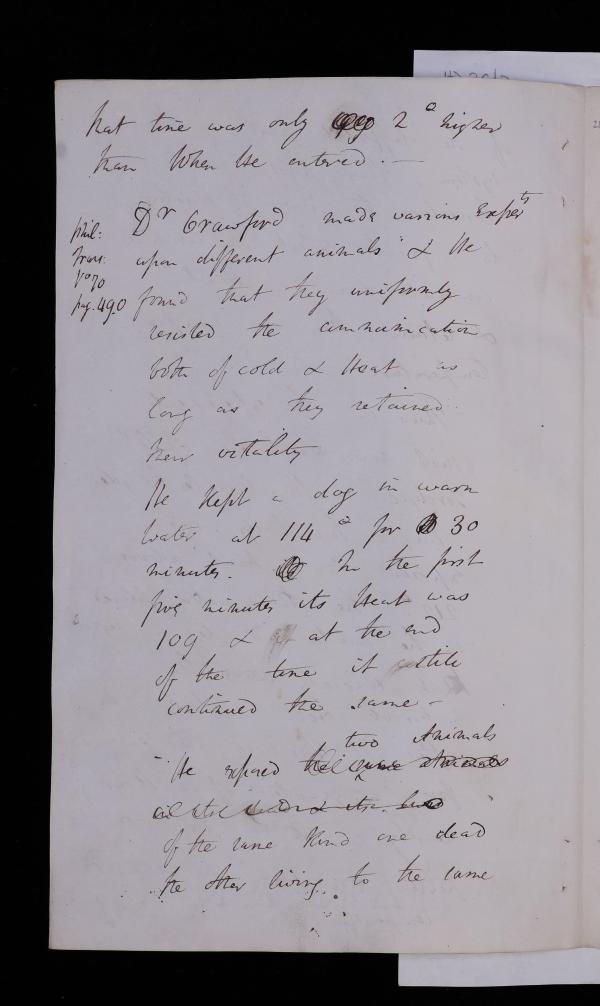 that time was only 2° higher
than when He entered. —
Dr Crawford made various Experts
phil:
trans:
Vo 70
pag. 490
upon different animals & He
found that they uniformly
resisted the communication
both of cold & Heat as
long as they retained
their vitality
He kept a dog in warm
water at 114° for 30
minutes. In the first
five minutes its Heat was
109 & at the end
of the time it still
continued the same –
two Animals
He exposed the same animals
of the same Kind one dead
the other living, to the same